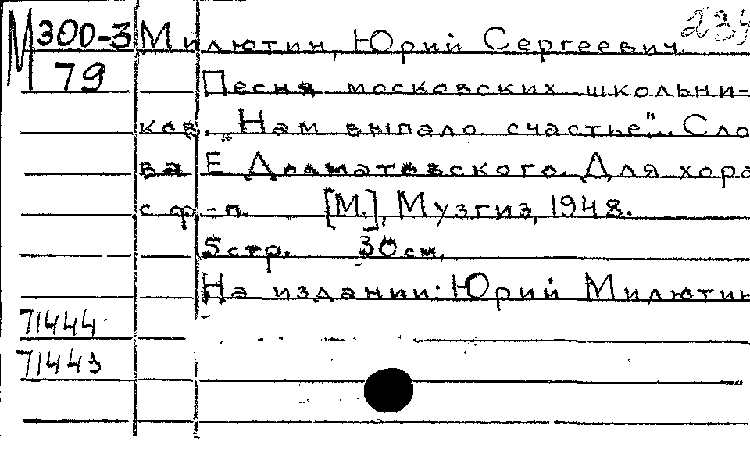 М 300-3 Милютин, Юрий Сергеевич. 234
79 Песня московских школьни-
ков. „Нам выпало счастье". Сло
ва Е Долматовского. Для хора
с ф-п. [М.], Музгиз, 1948.
5стр. 30см.
На издании: Юрий Милютин
71444
71443